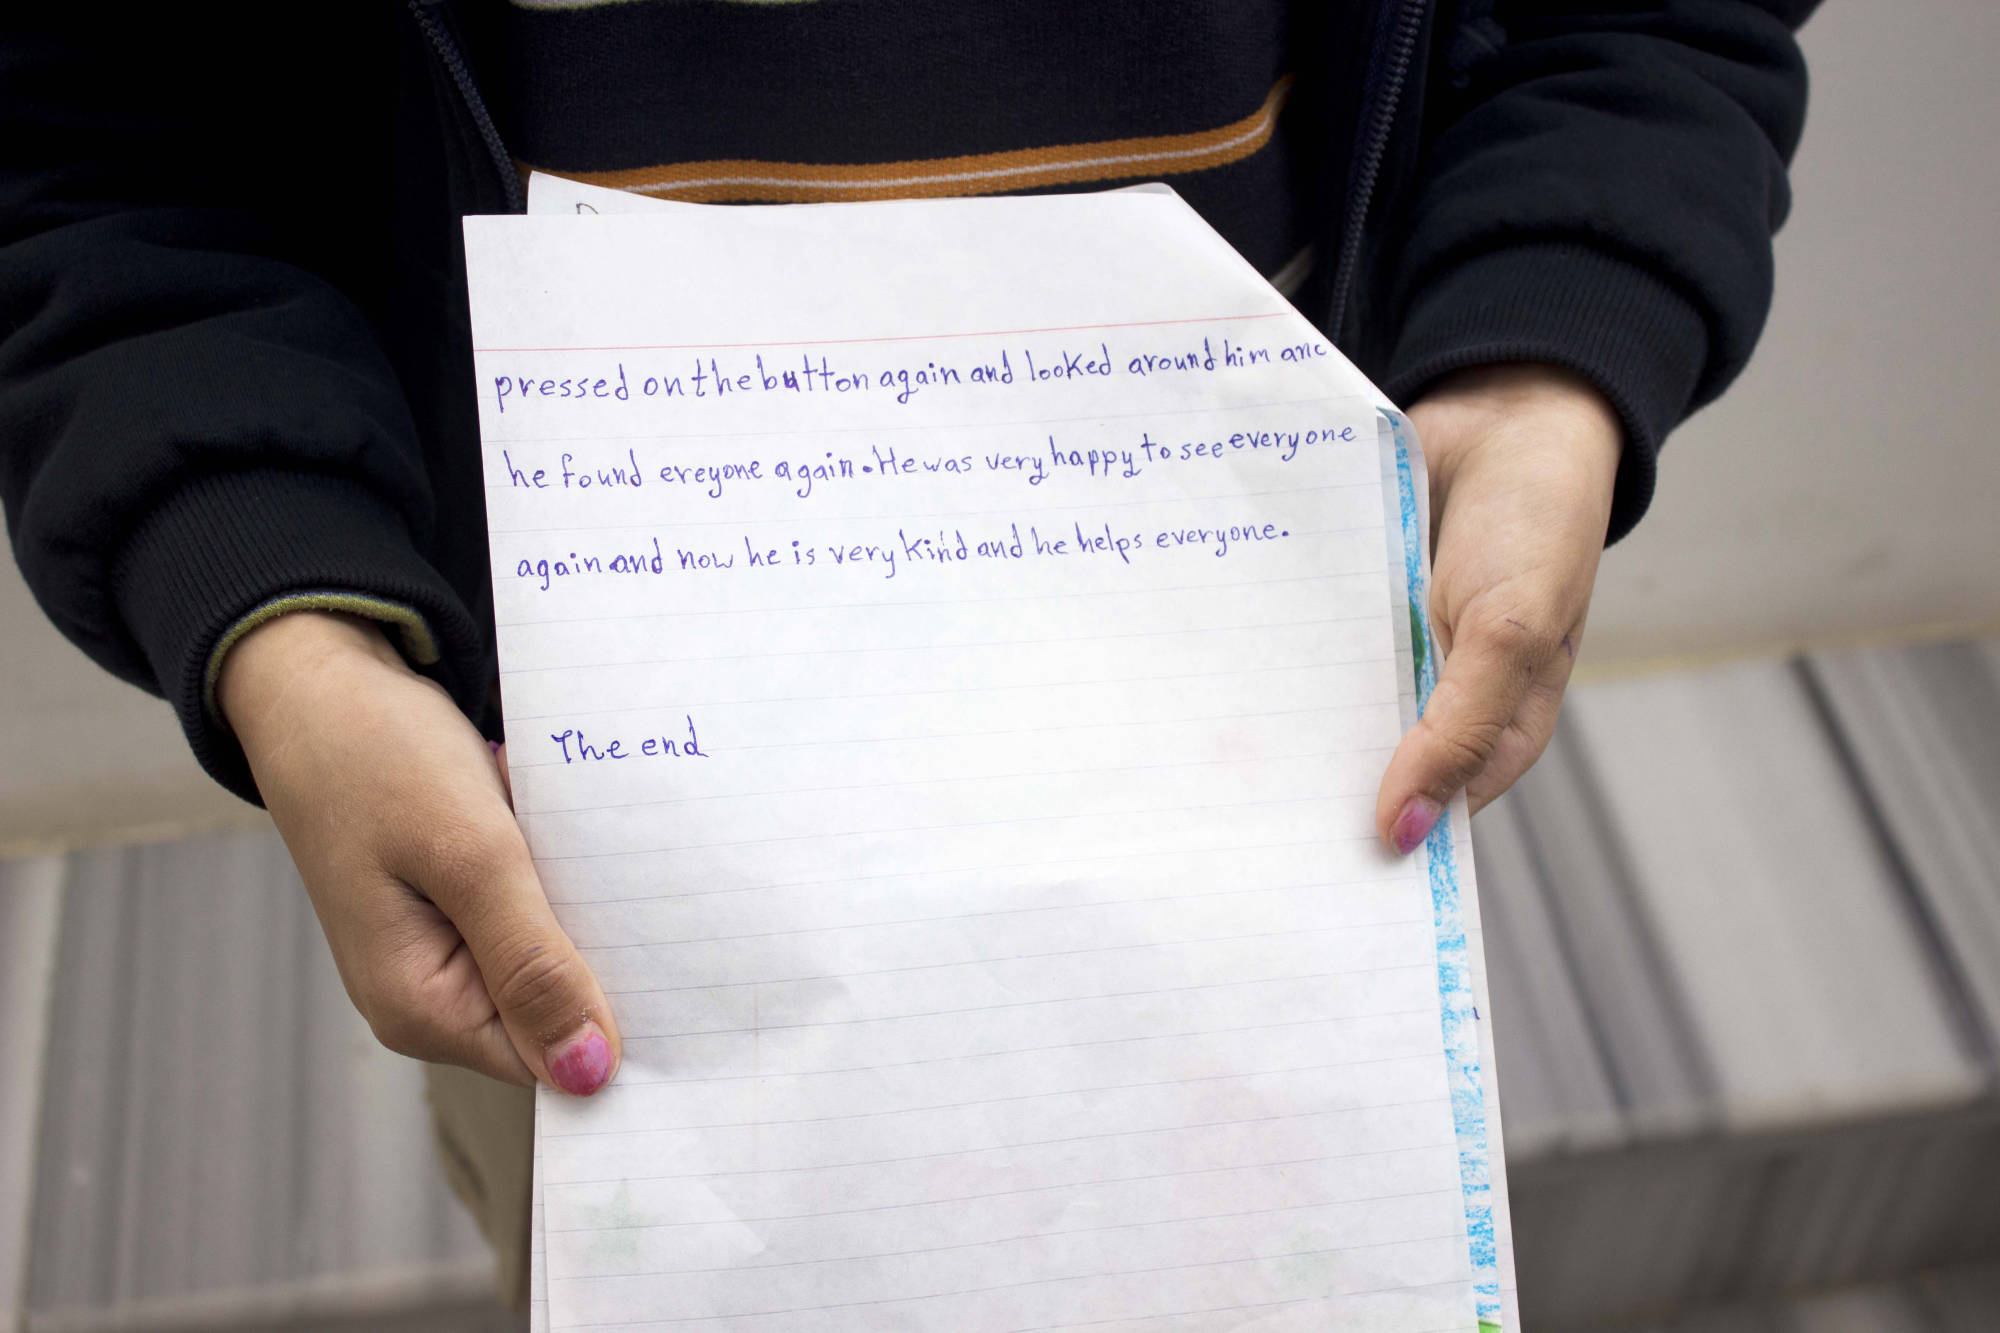 pressed on the button again and looked around him and
he found ereyone again. He was very happy to see everyone
again and now he is very kind and he helps everyone.
The end